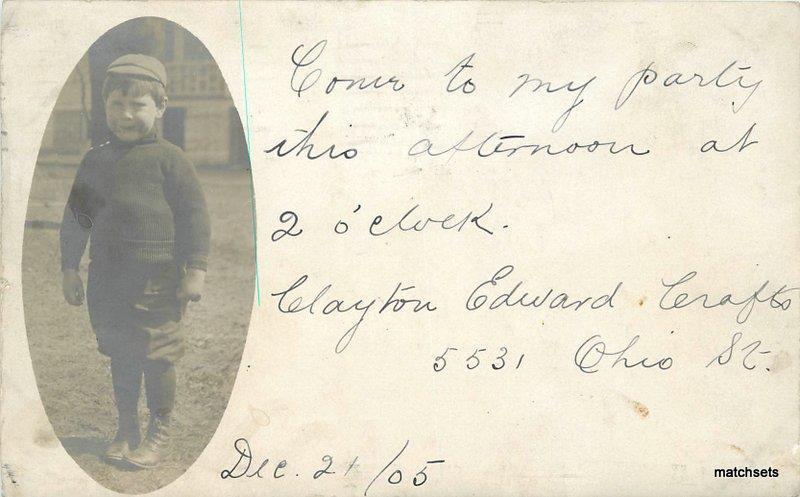 Come to my party
this afternoon at
2 o'clock.
Clayton Edward Crafts
5531 Ohio St.
Dec. 21/05
matchsets